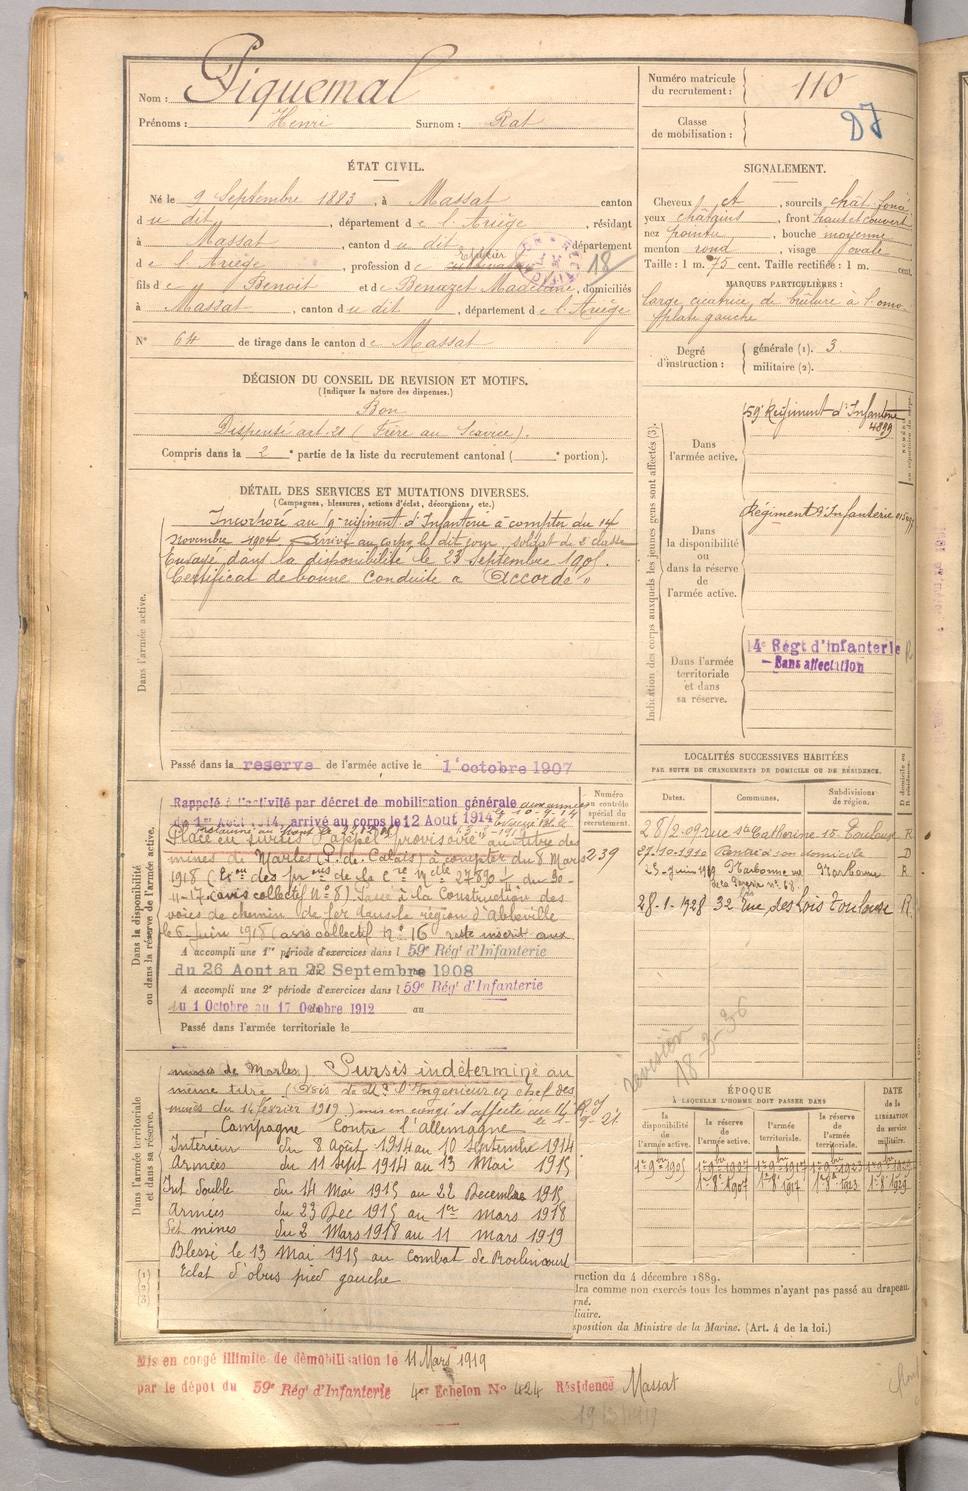 Nom : Piquemal
Prénoms : Henri Surnom : Rat
Numéro matricule du recrutement : 110
Classe de mobilisation :
ÉTAT CIVIL.
Né le 9 Septembre 1883, à Massat canton
du dit, département de l'Ariège, résidant
à Massat, canton du dit département
de l'Ariège, profession de
18
fils de Benoit et de Benazet Madelaine, domiciliés
à Massat, canton du dit, département de l'Ariège
N° 64 de tirage dans le canton de Massat
DÉCISION DU CONSEIL DE REVISION ET MOTIFS.
(Indiquer la nature des dispenses.)
Bon
Dispensé art. 21 (Frère au Service).
Compris dans la 2e partie de la liste du recrutement cantonal ( e portion).
SIGNALEMENT.
Cheveux et, sourcils chât. foncé
yeux châtains, front haut et couvert
nez pointu, bouche moyenne
menton rond, visage ovale
Taille : 1 m. 75 cent. Taille rectifiée : 1 m. cent.
MARQUES PARTICULIÈRES :
large cicatrice de brûlure à l'omo-
plate gauche
Degré d'instruction : générale (1). 3
militaire (2).
DÉTAIL DES SERVICES ET MUTATIONS DIVERSES.
(Campagnes, blessures, actions d'éclat, décorations, etc.)
Dans l'armée active.
Incorporé au 9e régiment d'Infanterie à compter du 14
novembre 1904. Arrivé au corps le dit jour, soldat de 2e classe
Envoyé dans la disponibilité le 23 Septembre 1905.
Certificat de bonne conduite "Accordé"
Passé dans la réserve de l'armée active le 1er octobre 1907
Indication des corps auxquels les jeunes gens sont affectés (3).
Dans l'armée active.
59e Régiment d'Infanterie
4899
Dans la disponibilité ou dans la réserve de l'armée active.
Régiment d'Infanterie
Dans l'armée territoriale et dans sa réserve.
14e Régt d'Infanterie
- Sans affectation
Dans la disponibilité ou dans la réserve de l'armée active.
Rappelé à l'activité par décret de mobilisation générale
du 1er Août 1914, arrivé au corps le 12 Aout 1914
Placé en sursis d'appel provisoire au titre des
mines de Marles (P. de Calais) à compter du 8 Mars
1918
11-17 (avis collectif n° 8) Passé à la Construction des
voies de chemin de fer dans la région d'Abbeville
le 6 Juin 1918 (avis collectif n° 16 reste inscrit aux
Numéro au contrôle spécial du recrutement.
239
A accompli une 1re période d'exercices dans le 59e Régt d'Infanterie
du 26 Aout au 22 Septembre 1908
A accompli une 2e période d'exercices dans le 59e Régt d'Infanterie
du 1 Octobre au 17 Octobre 1912
Passé dans l'armée territoriale le
LOCALITÉS SUCCESSIVES HABITÉES
PAR SUITE DE CHANGEMENTS DE DOMICILE OU DE RÉSIDENCE.
Dates. Communes. Subdivisions de région. D domicile ou R résidence.
28/2-09 rue Ste Catherine 15 Toulouse R
27-10-1910 Rentré à son domicile D
Narbonne Narbonne R
28-1-1928 32 rue des Lois Toulouse R.
revision
18-3-36
Dans l'armée territoriale et dans sa réserve.
mines de Marles) Sursis indéterminé au
même titre (Avis de Mr l'Ingénieur en chef des
mines du 14 février 1919) mis en congé et affecté au 14e
Campagne Contre l'allemagne
Intérieur du 8 Août 1914 au 10 Septembre 1914
Armées du 11 Sept 1914 au 13 Mai 1915
Int double du 14 Mai 1915 au 22 Decembre 1915
Armées du 23 Dec 1915 au 1er mars 1918
Set mines du 2 Mars 1918 au 11 mars 1919
Blessé le 13 Mai 1915 au combat de Roclincourt
Eclat d'obus pied gauche
ÉPOQUE
À LAQUELLE L'HOMME DOIT PASSER DANS
la disponibilité de l'armée active.
la réserve de l'armée active.
l'armée territoriale.
la réserve de l'armée territoriale.
DATE de la LIBÉRATION du service militaire.
(1)
(2)
(3)
ruction du 4 décembre 1889.
dra comme non exercés tous les hommes n'ayant pas passé au drapeau.
rné.
liaire.
sposition du Ministre de la Marine. (Art. 4 de la loi.)
Mis en congé illimité de démobilisation le 11 Mars 1919
par le dépôt du 59e Régt d'Infanterie 4er Echelon No 424 Résidence Massat